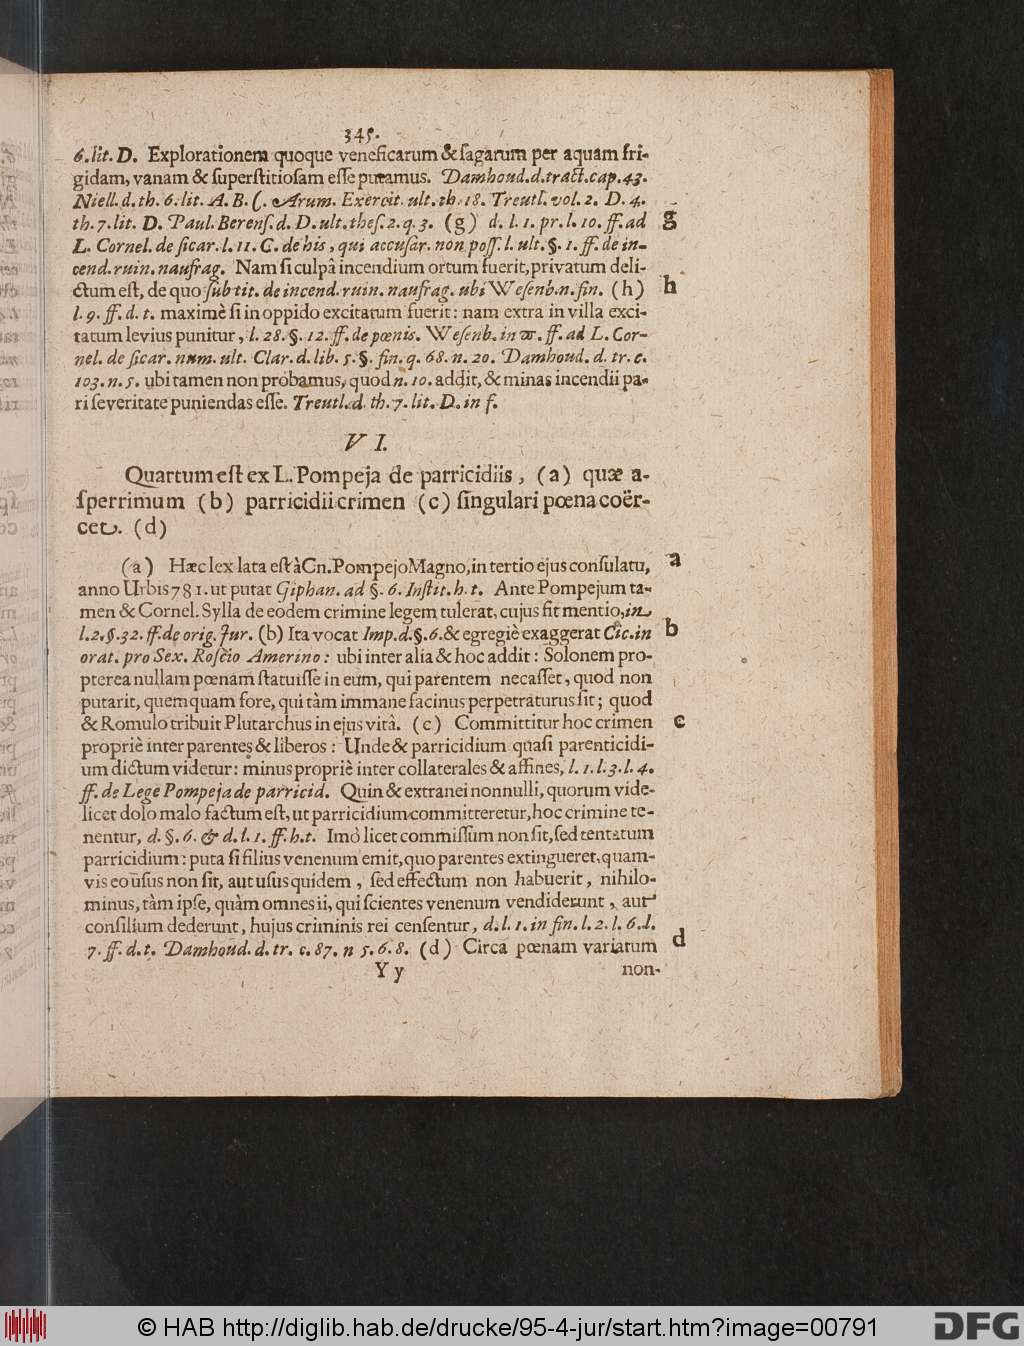 345.
6. lit. D. Explorationem quoque veneficarum & sagarum per aquam fri-
gidam, vanam & superstitiosam esse putamus. Damhoud. d. tract. cap. 43.
Niell. d. th. 6. lit. A. B. C. Arum. Exercit. ult. th. 18. Treutl. vol. 2. D. 4.
th. 7. lit. D. Paul. Berens. d. D. ult. thes. 2. q. 3. (g) d. l. 1. pr. l. 10. ff. ad
g
L. Cornel. de sicar. l. 11. C. de his, qui accusar. non poss. l. ult. §. 1. ff. de in-
cend. ruin. naufrag. Nam si culpâ incendium ortum fuerit, privatum deli-
ctum est, de quo sub tit. de incend. ruin. naufrag. ubi Wesenb. n. fin. (h)
h
l. 9. ff. d. t. maximè si in oppido excitatum fuerit: nam extra in villa exci-
tatum levius punitur, l. 28. §. 12. ff. de pœnis. Wesenb. in ϖ. ff. ad L. Cor-
nel. de sicar. num. ult. Clar. d. lib. 5. §. fin. q. 68. n. 20. Damhoud. d. tr. c.
103. n. 5. ubi tamen non probamus, quod n. 10. addit, & minas incendii pa-
ri severitate puniendas esse. Treutl. d. th. 7. lit. D. in f.
VI.
Quartum est ex L. Pompeja de parricidiis, (a) quæ a-
sperrimum (b) parricidii crimen (c) singulari pœna coër-
cet. (d)
(a) Hæc lex lata est à Cn. Pompejo Magno, in tertio ejus consulatu,
a
anno Urbis 781. ut putat Giphan. ad §. 6. Instit. h. t. Ante Pompejum ta-
men & Cornel. Sylla de eodem crimine legem tulerat, cujus fit mentio, in
l. 2. §. 32. ff. de orig. Jur. (b) Ita vocat Imp. d. §. 6. & egregiè exaggerat Cic. in
b
orat. pro Sex. Roscio Amerino: ubi inter alia & hoc addit: Solonem pro-
pterea nullam pœnam statuisse in eum, qui parentem necasset, quod non
putarit, quemquam fore, qui tàm immane facinus perpetraturus sit; quod
& Romulo tribuit Plutarchus in ejus vitâ. (c) Committitur hoc crimen
c
propriè inter parentes & liberos: Unde & parricidium quasi parenticidi-
um dictum videtur: minus propriè inter collaterales & affines, l. 1. l. 3. l. 4.
ff. de Lege Pompeja de parricid. Quin & extranei nonnulli, quorum vide-
licet dolo malo factum est, ut parricidium committeretur, hoc crimine te-
nentur, d. §. 6. & d. l. 1. ff. h. t. Imò licet commissum non sit, sed tentatum
parricidium: puta si filius venenum emit, quo parentes extingueret, quam-
vis eo usus non sit, aut usus quidem, sed effectum non habuerit, nihilo-
minus, tàm ipse, quàm omnes ii, qui scientes venenum vendiderunt, aut
consilium dederunt, hujus criminis rei censentur, d. l. 1. in fin. l. 2. l. 6. l.
7. ff. d. t. Damhoud. d. tr. c. 87. n 5. 6. 8. (d) Circa pœnam variatum
d
Yy
non-
© HAB http://diglib.hab.de/drucke/95-4-jur/start.htm?image=00791
DFG